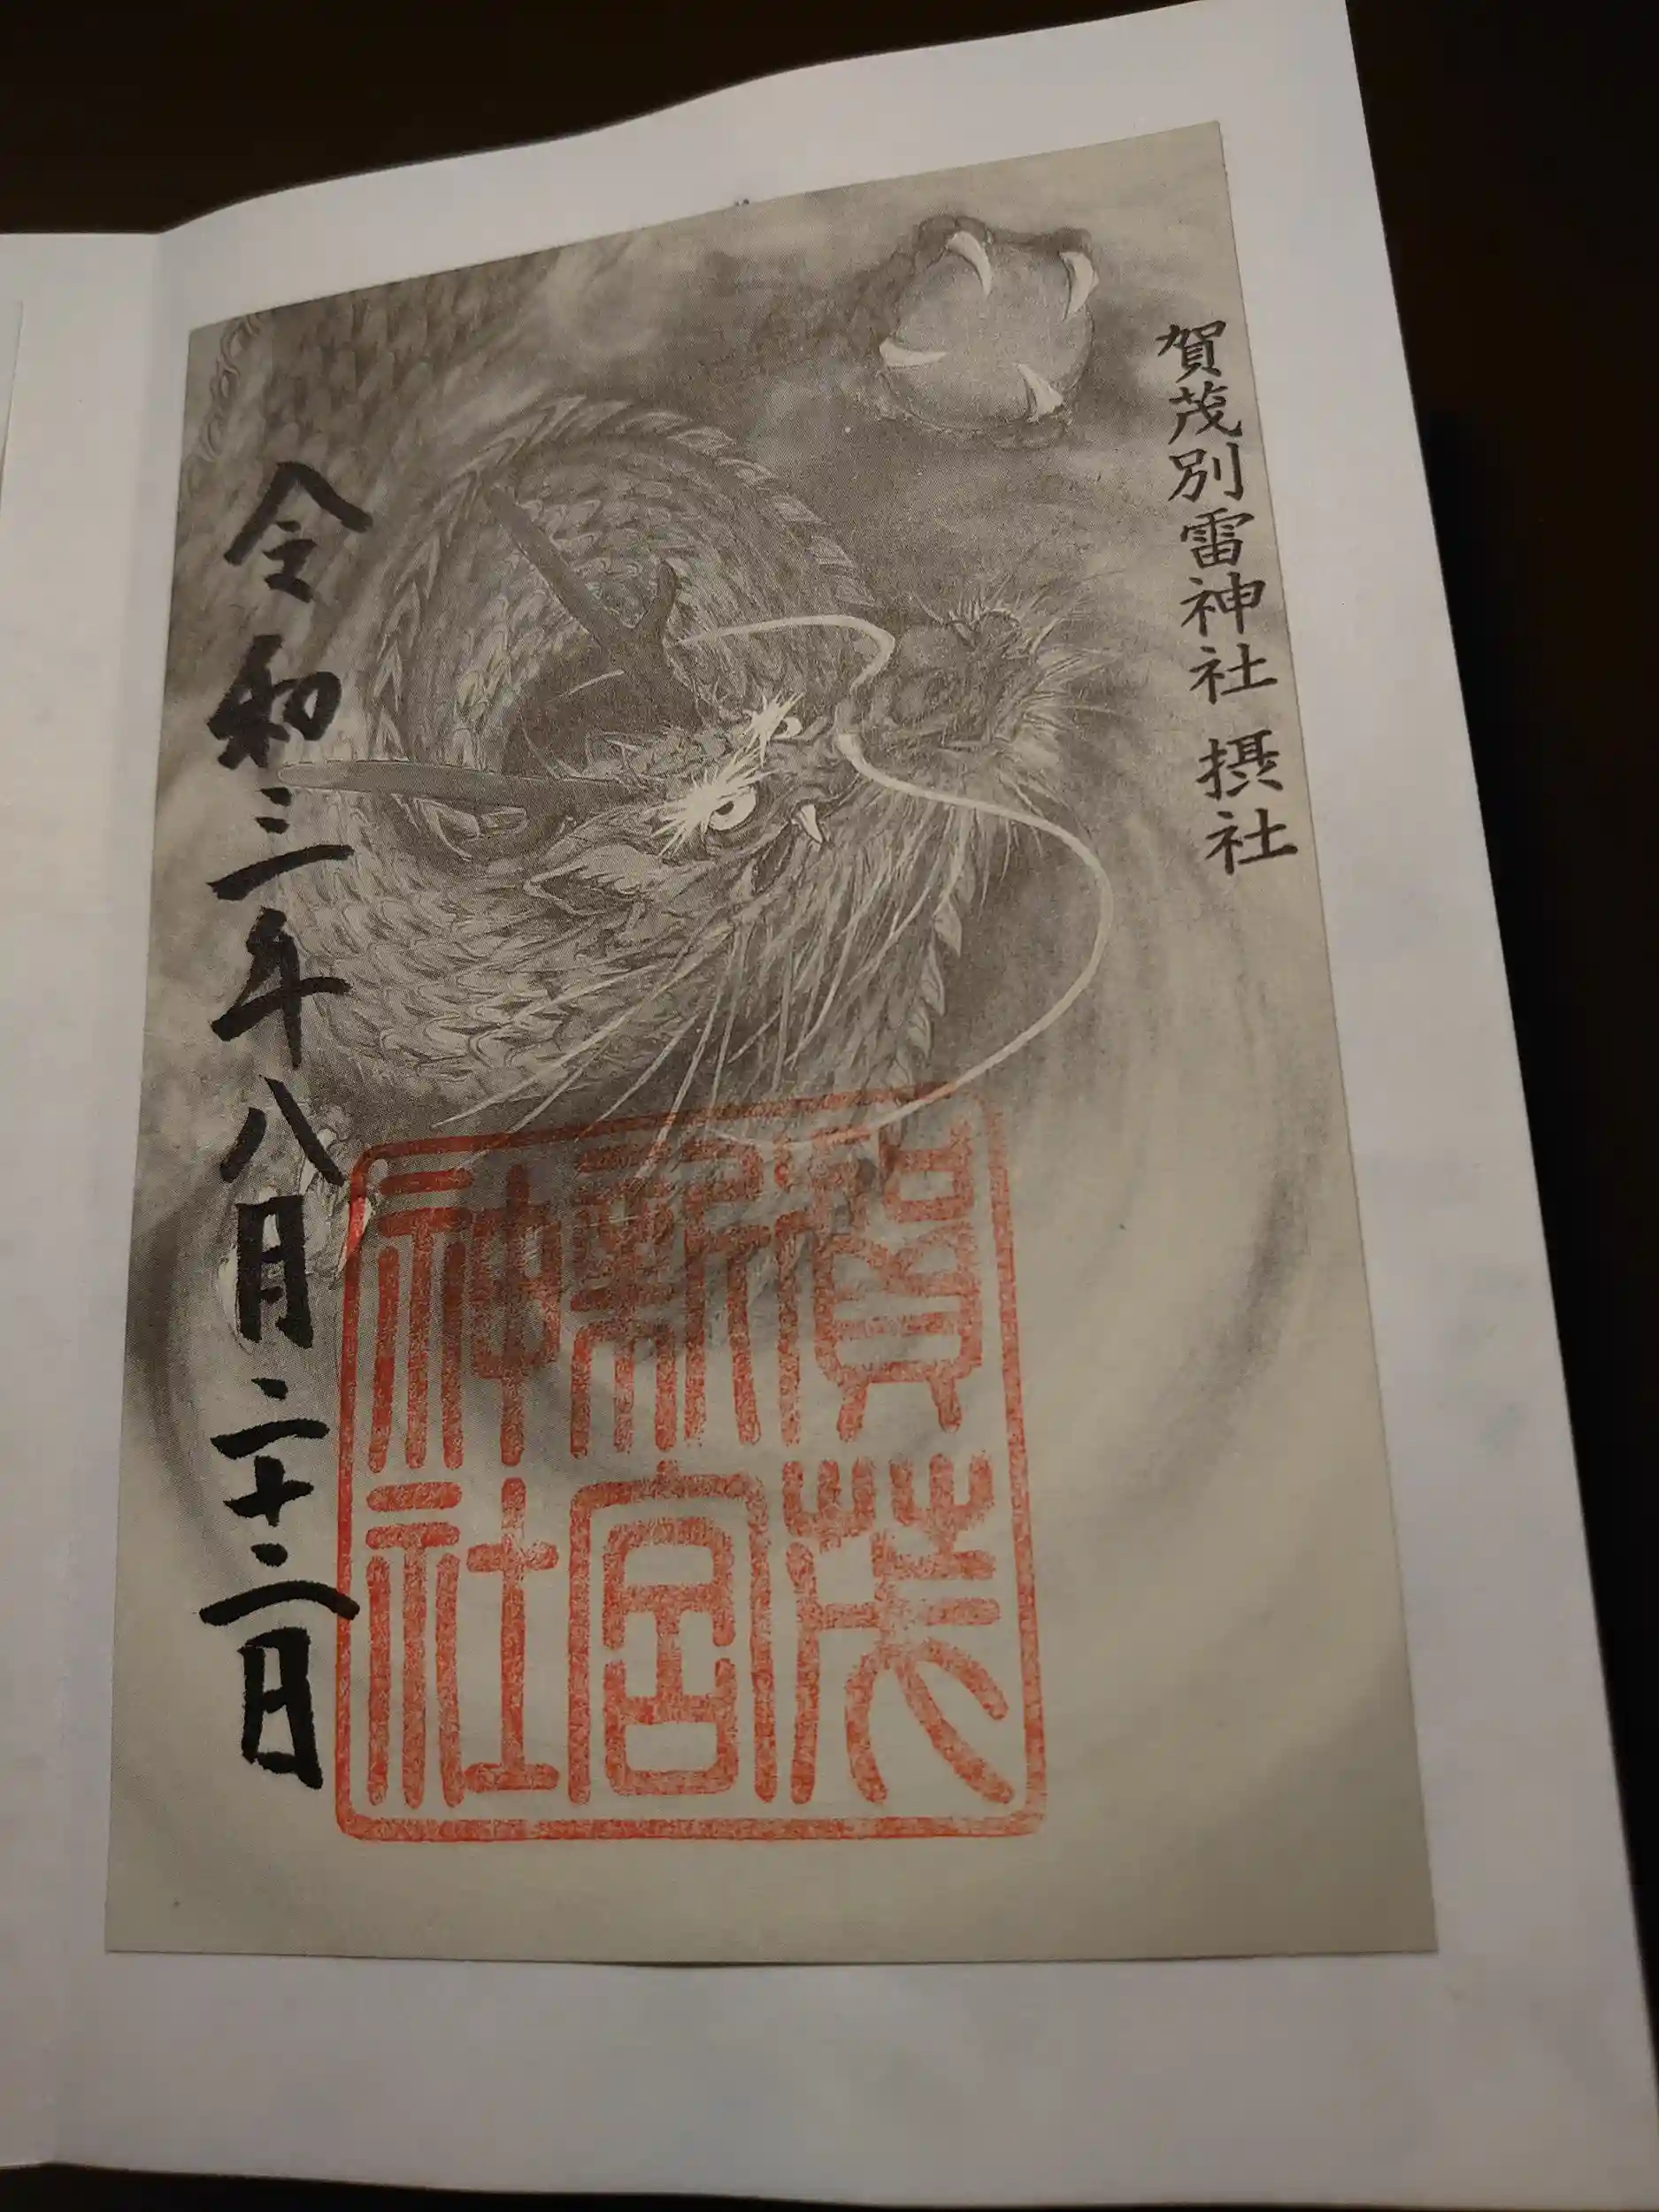 賀茂別雷神社 摂社
賀茂
新宮
神社
令和三年八月二十二日